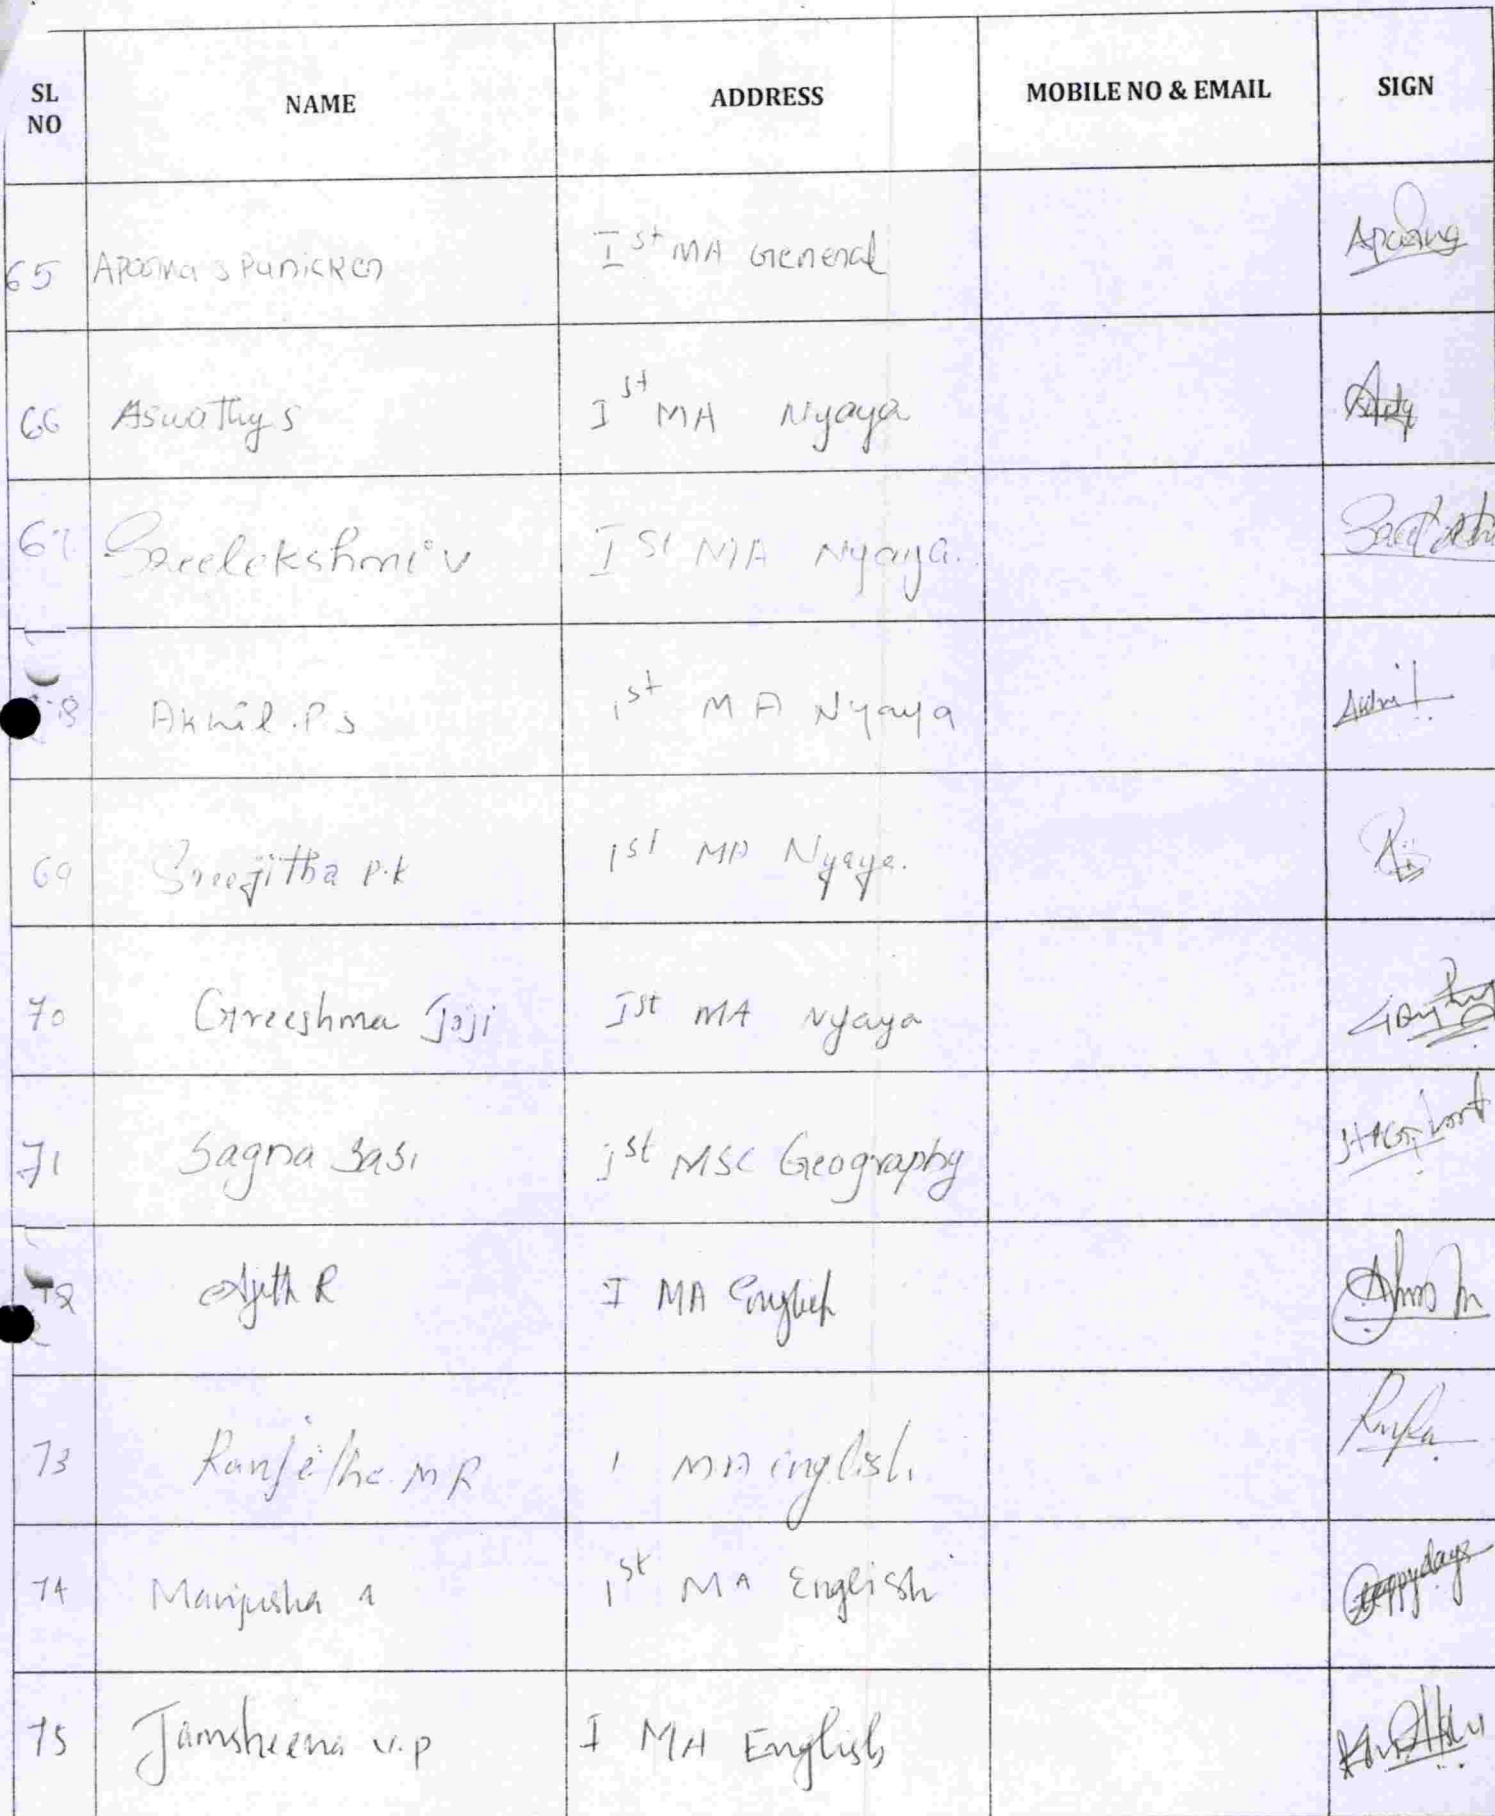 SL NO NAME ADDRESS MOBILE NO & EMAIL SIGN
65 Apoorna s Panicker Ist MA General
66 Aswathy s Ist MA Nyaya
67 Sreelekshmi v Ist MA Nyaya.
68 Akhil .P s 1st MA Nyaya
69 Sreejitha P.k 1st MA Nyaya.
70 Greeshma Joji Ist MA Nyaya
71 Sagna Sasi 1st MSC Geography
72 Ajith R I MA English
73 Ranjitha M R 1 MA English
74 Manjusha A 1st MA English Happydays
75 Jamsheena v.p I MA English